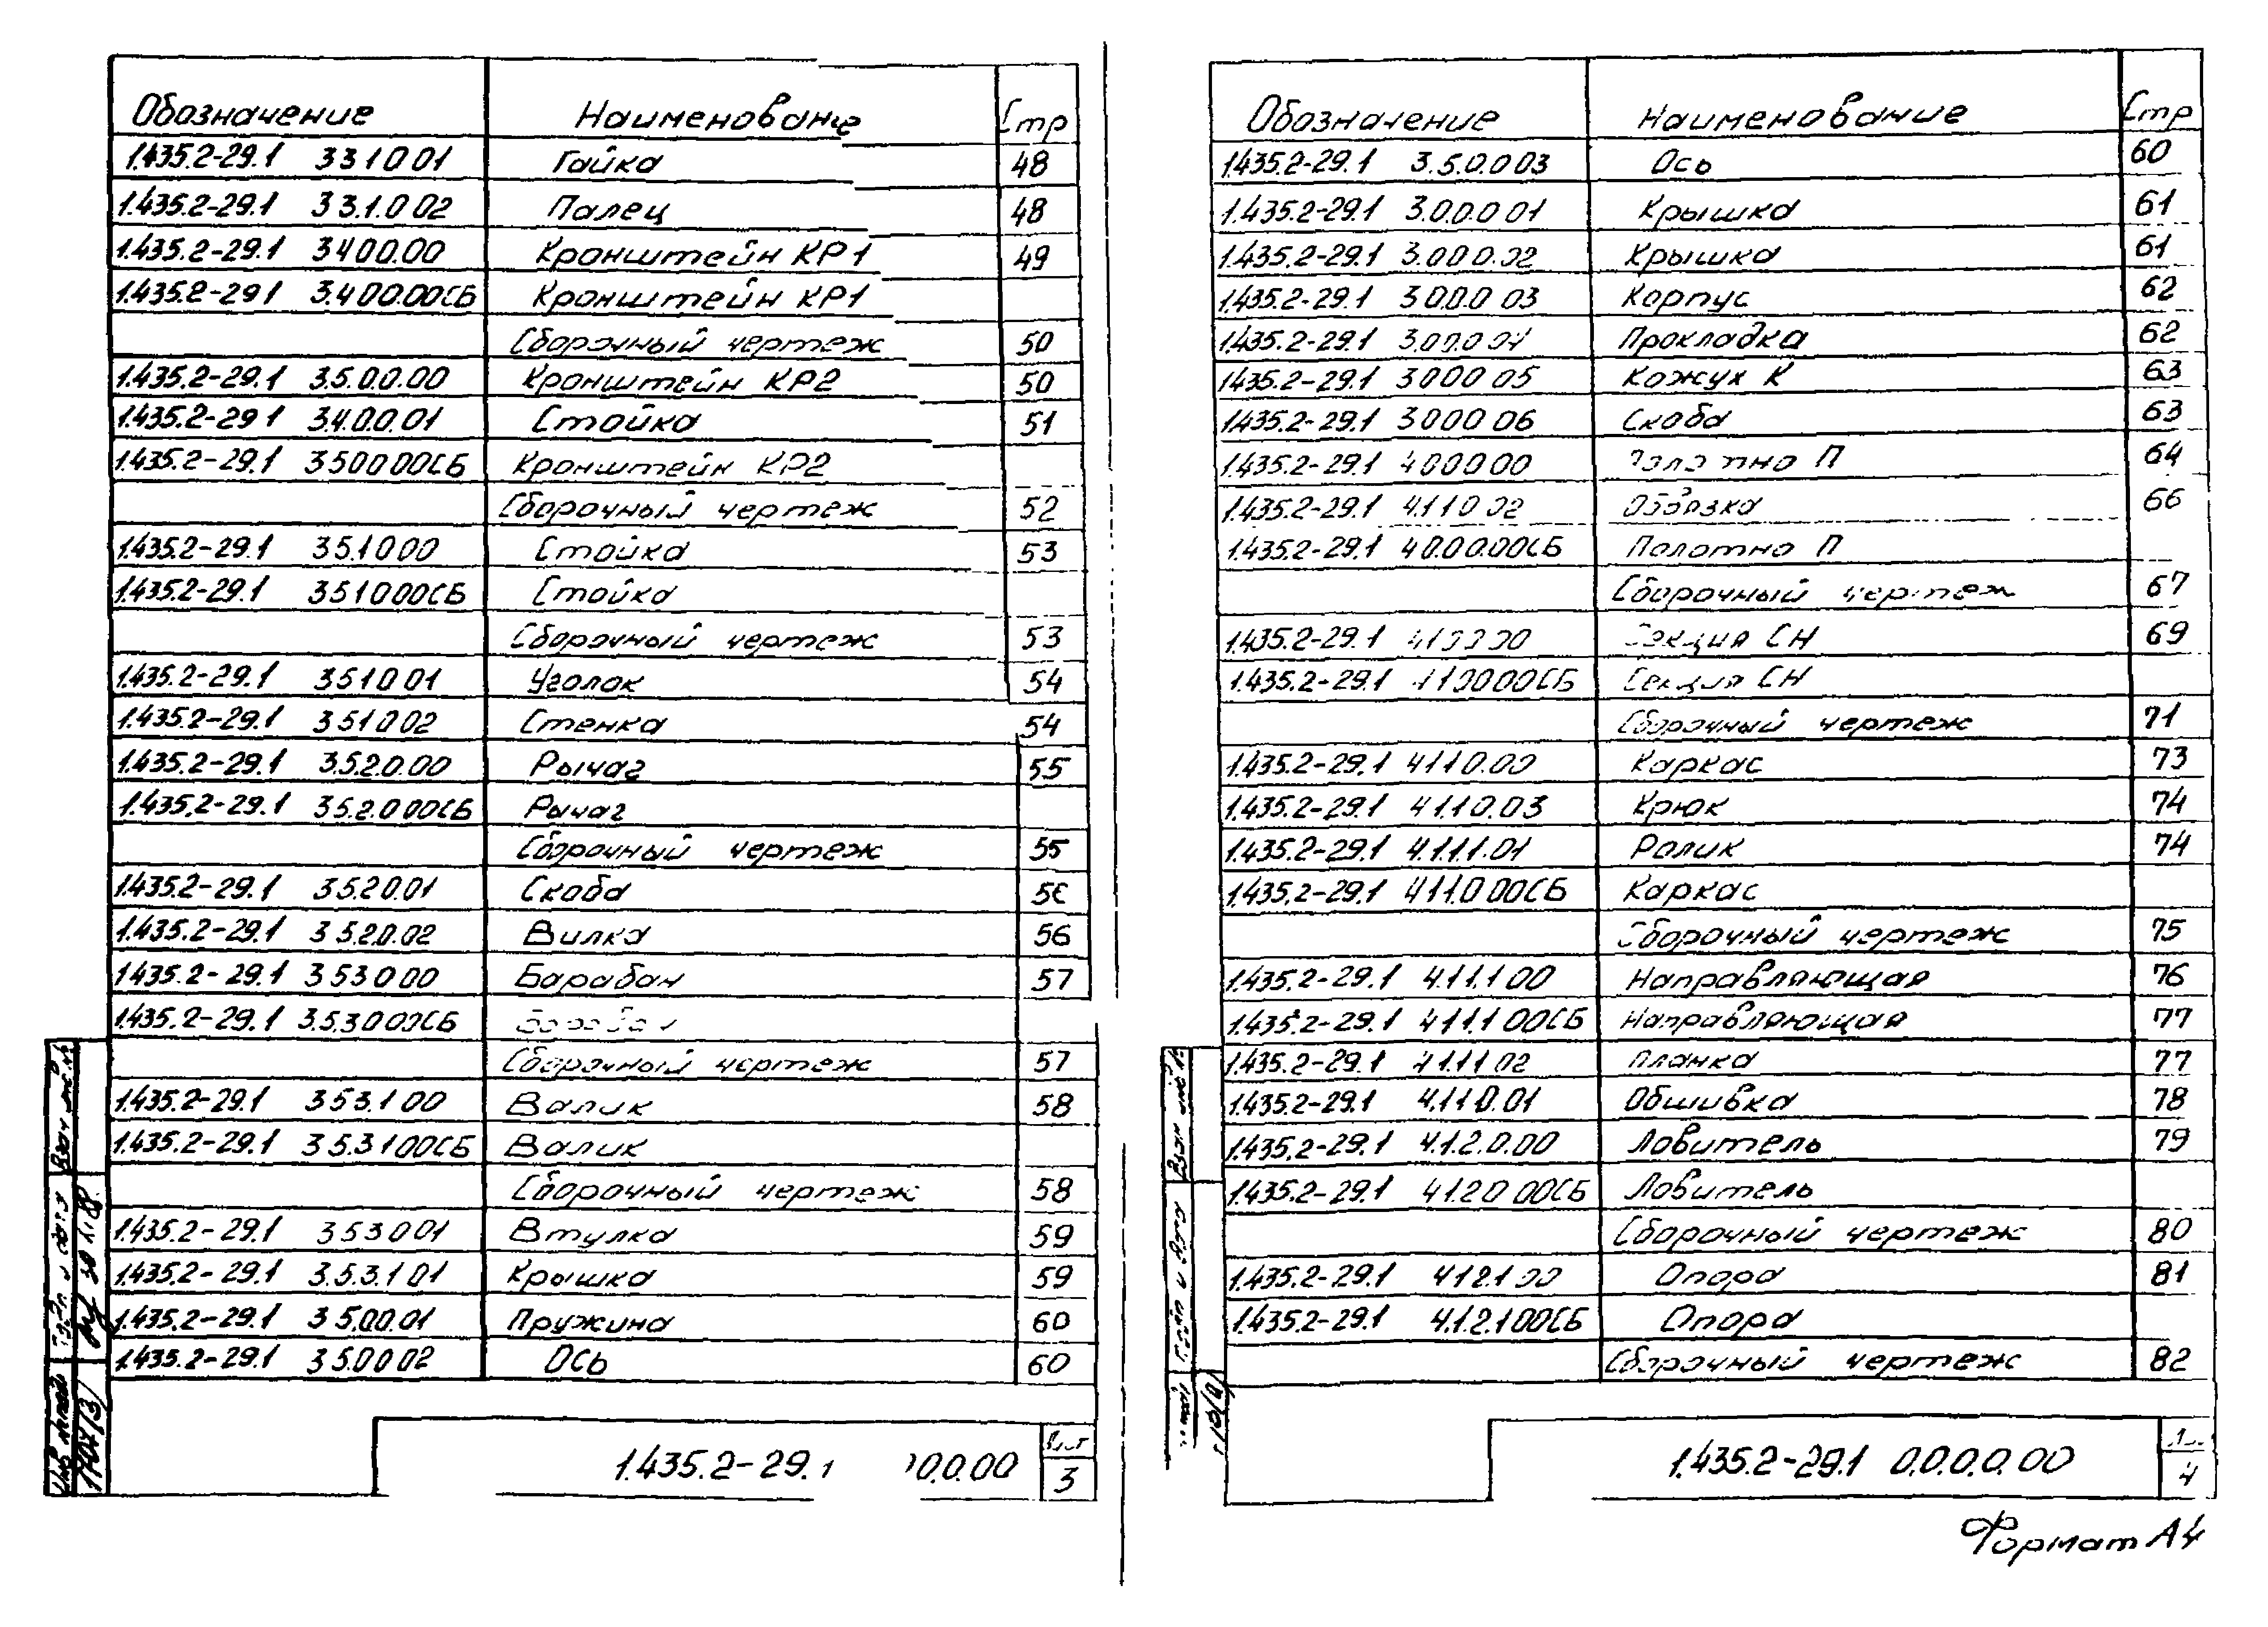 Обозначение Наименование Стр
1.435.2-29.1 3310.01 Гайка 48
1.435.2-29.1 33.1.0 02 Палец 48
1.435.2-29.1 3400.00 Кронштейн КР1 49
1.435.2-29 1 3.400.00СБ Кронштейн КР1
Сборочный чертеж 50
1.435.2-29.1 3.5.0.0.00 Кронштейн КР2 50
1.435.2-29 1 3.4.0.0.01 Стойка 51
1.435.2-29.1 350000СБ Кронштейн КР2
Сборочный чертеж 52
1.435.2-29.1 35.1000 Стойка 53
1.435.2-29.1 351000СБ Стойка
Сборочный чертеж 53
1.435.2-29.1 351001 Уголок 54
1.435.2-29.1 351002 Стенка 54
1.435.2-29.1 3.5.2.0.00 Рычаг 55
1.435.2-29.1 35.2.000СБ Рычаг
Сборочный чертеж 55
1.435.2-29.1 3.5.20.01 Скоба 56
1.435.2-29.1 3 5.2.0.02 Вилка 56
1.435.2-29.1 353000 Барабан 57
1.435.2-29.1 3.5.3000СБ Барабан
Сборочный чертеж 57
1.435.2-29.1 353.100 Валик 58
1.435.2-29.1 353100СБ Валик
Сборочный чертеж 58
1.435.2-29.1 353001 Втулка 59
1.435.2-29.1 3.5.3.1 01 Крышка 59
1.435.2-29.1 3 5.00.01 Пружина 60
1.435.2-29.1 3 5.0002 Ось 60
1.435.2-29.1 0.0.00
Лист
3
Взам инв.N
Подп и дата
Инв N подл
Обозначение Наименование Стр
1.435.2-29.1 3.5.0.0 03 Ось 60
1.435.2-29.1 3.0.0.0 01 Крышка 61
1.435.2-29.1 3.000.02 Крышка 61
1.435.2-29.1 3 0.0.0 03 Корпус 62
1.435.2-29.1 3.00.0 04 Прокладка 62
1.435.2-29.1 3000 05 Кожух К 63
1.435.2-29.1 3000 06 Скоба 63
1.435.2-29.1 400000 Полотно П 64
1.435.2-29.1 4.110.02 Обвязка 66
1.435.2-29.1 40.00.00СБ Полотно П
Сборочный чертеж 67
1.435.2-29.1 410000 Секция СН 69
1.435.2-29.1 410000СБ Секция СН
Сборочный чертеж 71
1.435.2-29.1 4110.00 Каркас 73
1.435.2-29.1 4.1.1.0.03 Крюк 74
1.435.2-29.1 4.1.1.1.01 Ролик 74
1.435.2-29.1 411.000СБ Каркас
Сборочный чертеж 75
1.435.2-29.1 4.1.1.1.00 Направляющая 76
1.435.2-29.1 4.11.1 00СБ Направляющая 77
1.435.2-29.1 4 1 1 1 02 Планка 77
1.435.2-29.1 4.110.01 Обшивка 78
1.435.2-29.1 4.1.2.0.00 Ловитель 79
1.435.2-29.1 4.1.20 00СБ Ловитель
Сборочный чертеж 80
1.435.2-29.1 412.1 00 Опора 81
1.435.2-29.1 4.1.2.100СБ Опора
Сборочный чертеж 82
1.435.2-29.1 0.0.0.0.00
4
Взам инв N
Подп и дата
Формат А4